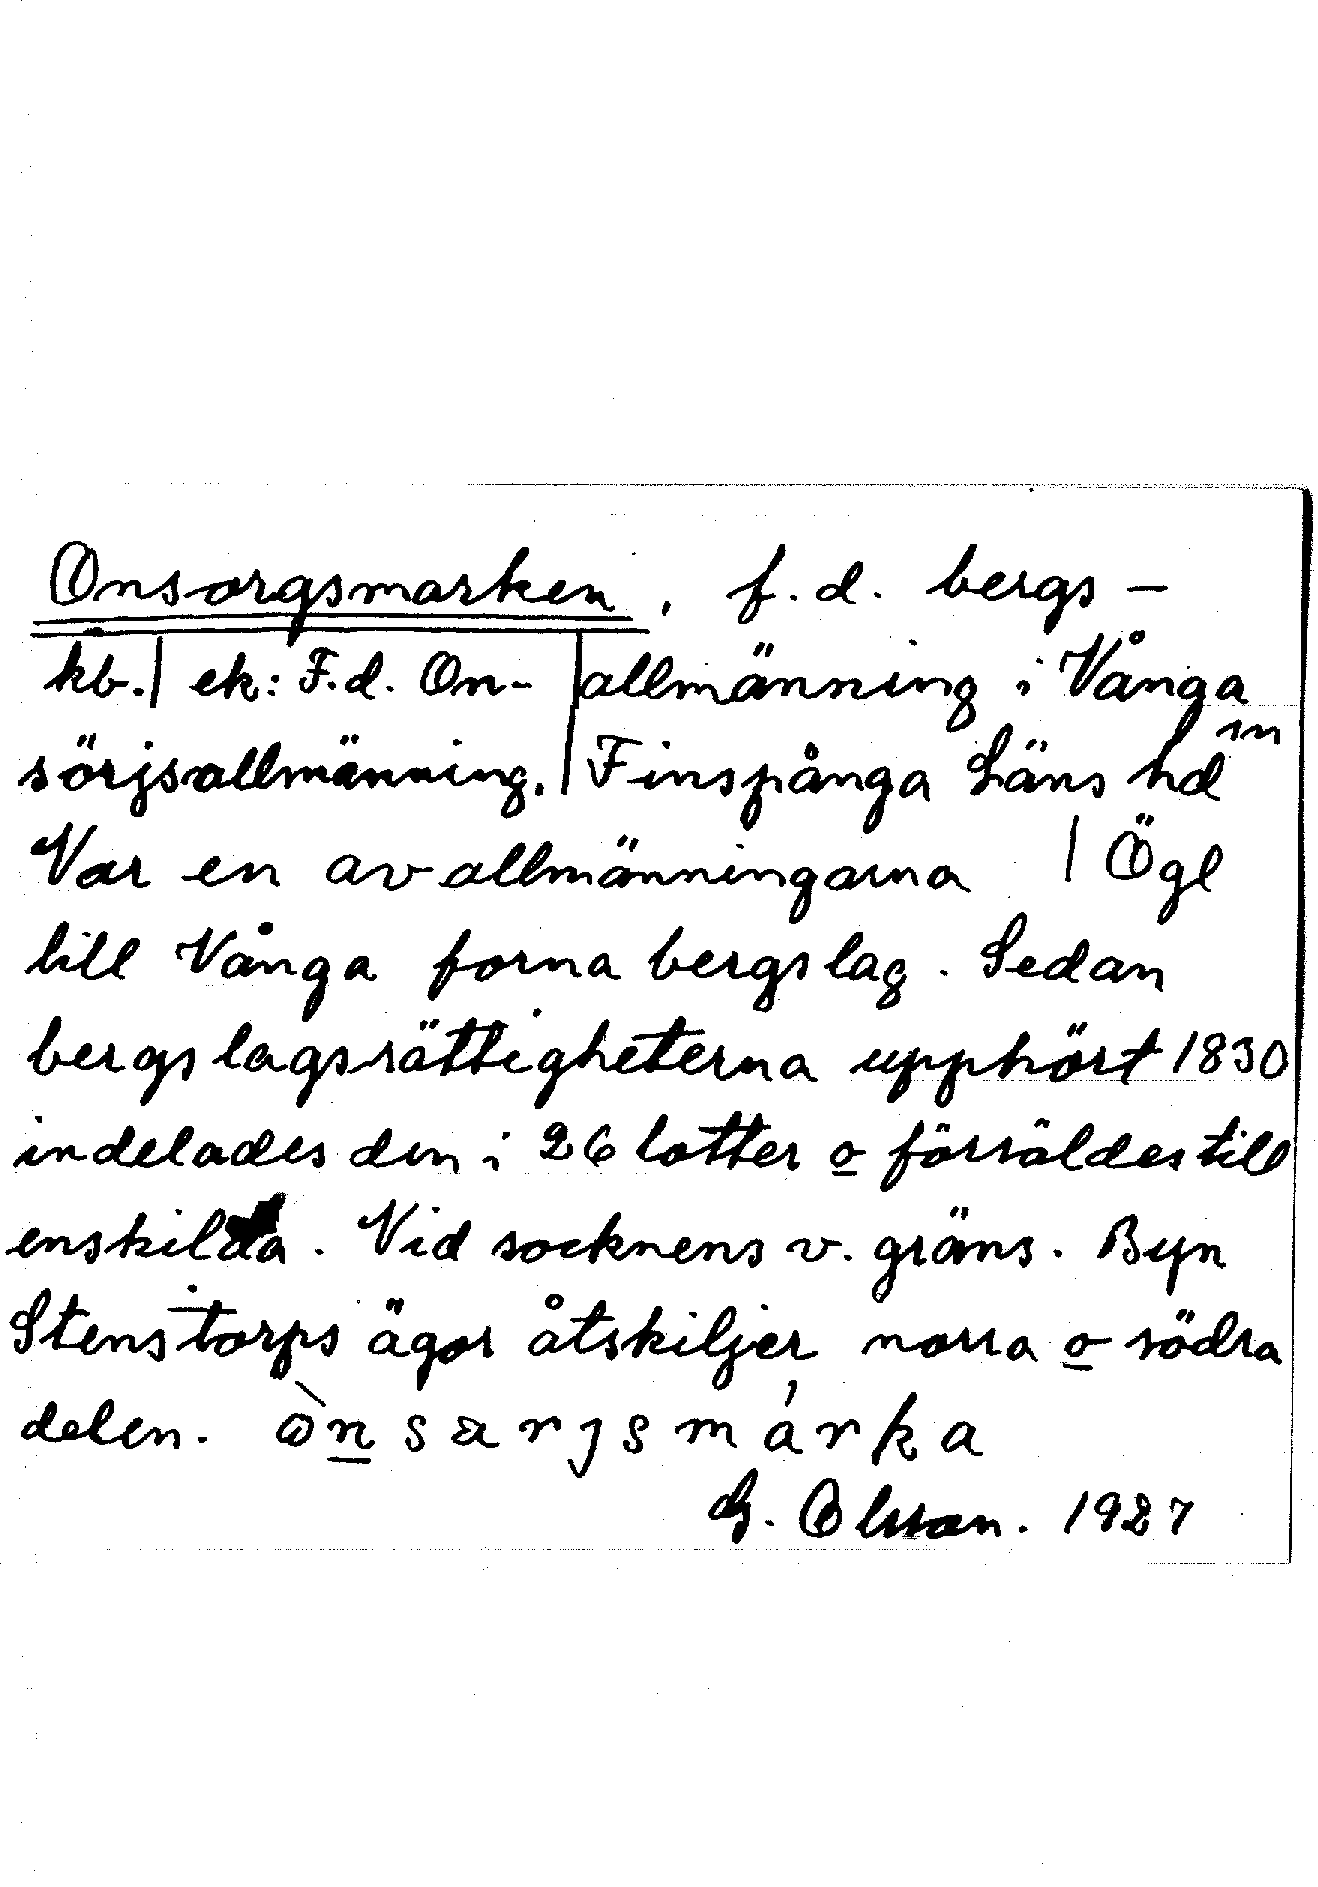 Onsorgsmarken, f.d. bergs-
kb. | ek: F.d. On- | allmänning i Vånga
sörjsallmänning. | Finspånga Läns hd sn
Var en av allmänningarna | Ögl
till Vånga forna bergslag. Sedan
bergslagsrättigheterna upphört 1830
indelades den i 26 lotter o försåldes till
enskilda. Vid socknens v. gräns. Byn
Stenstorps ägor åtskiljer norra o södra
delen.
G. Olsson. 1927